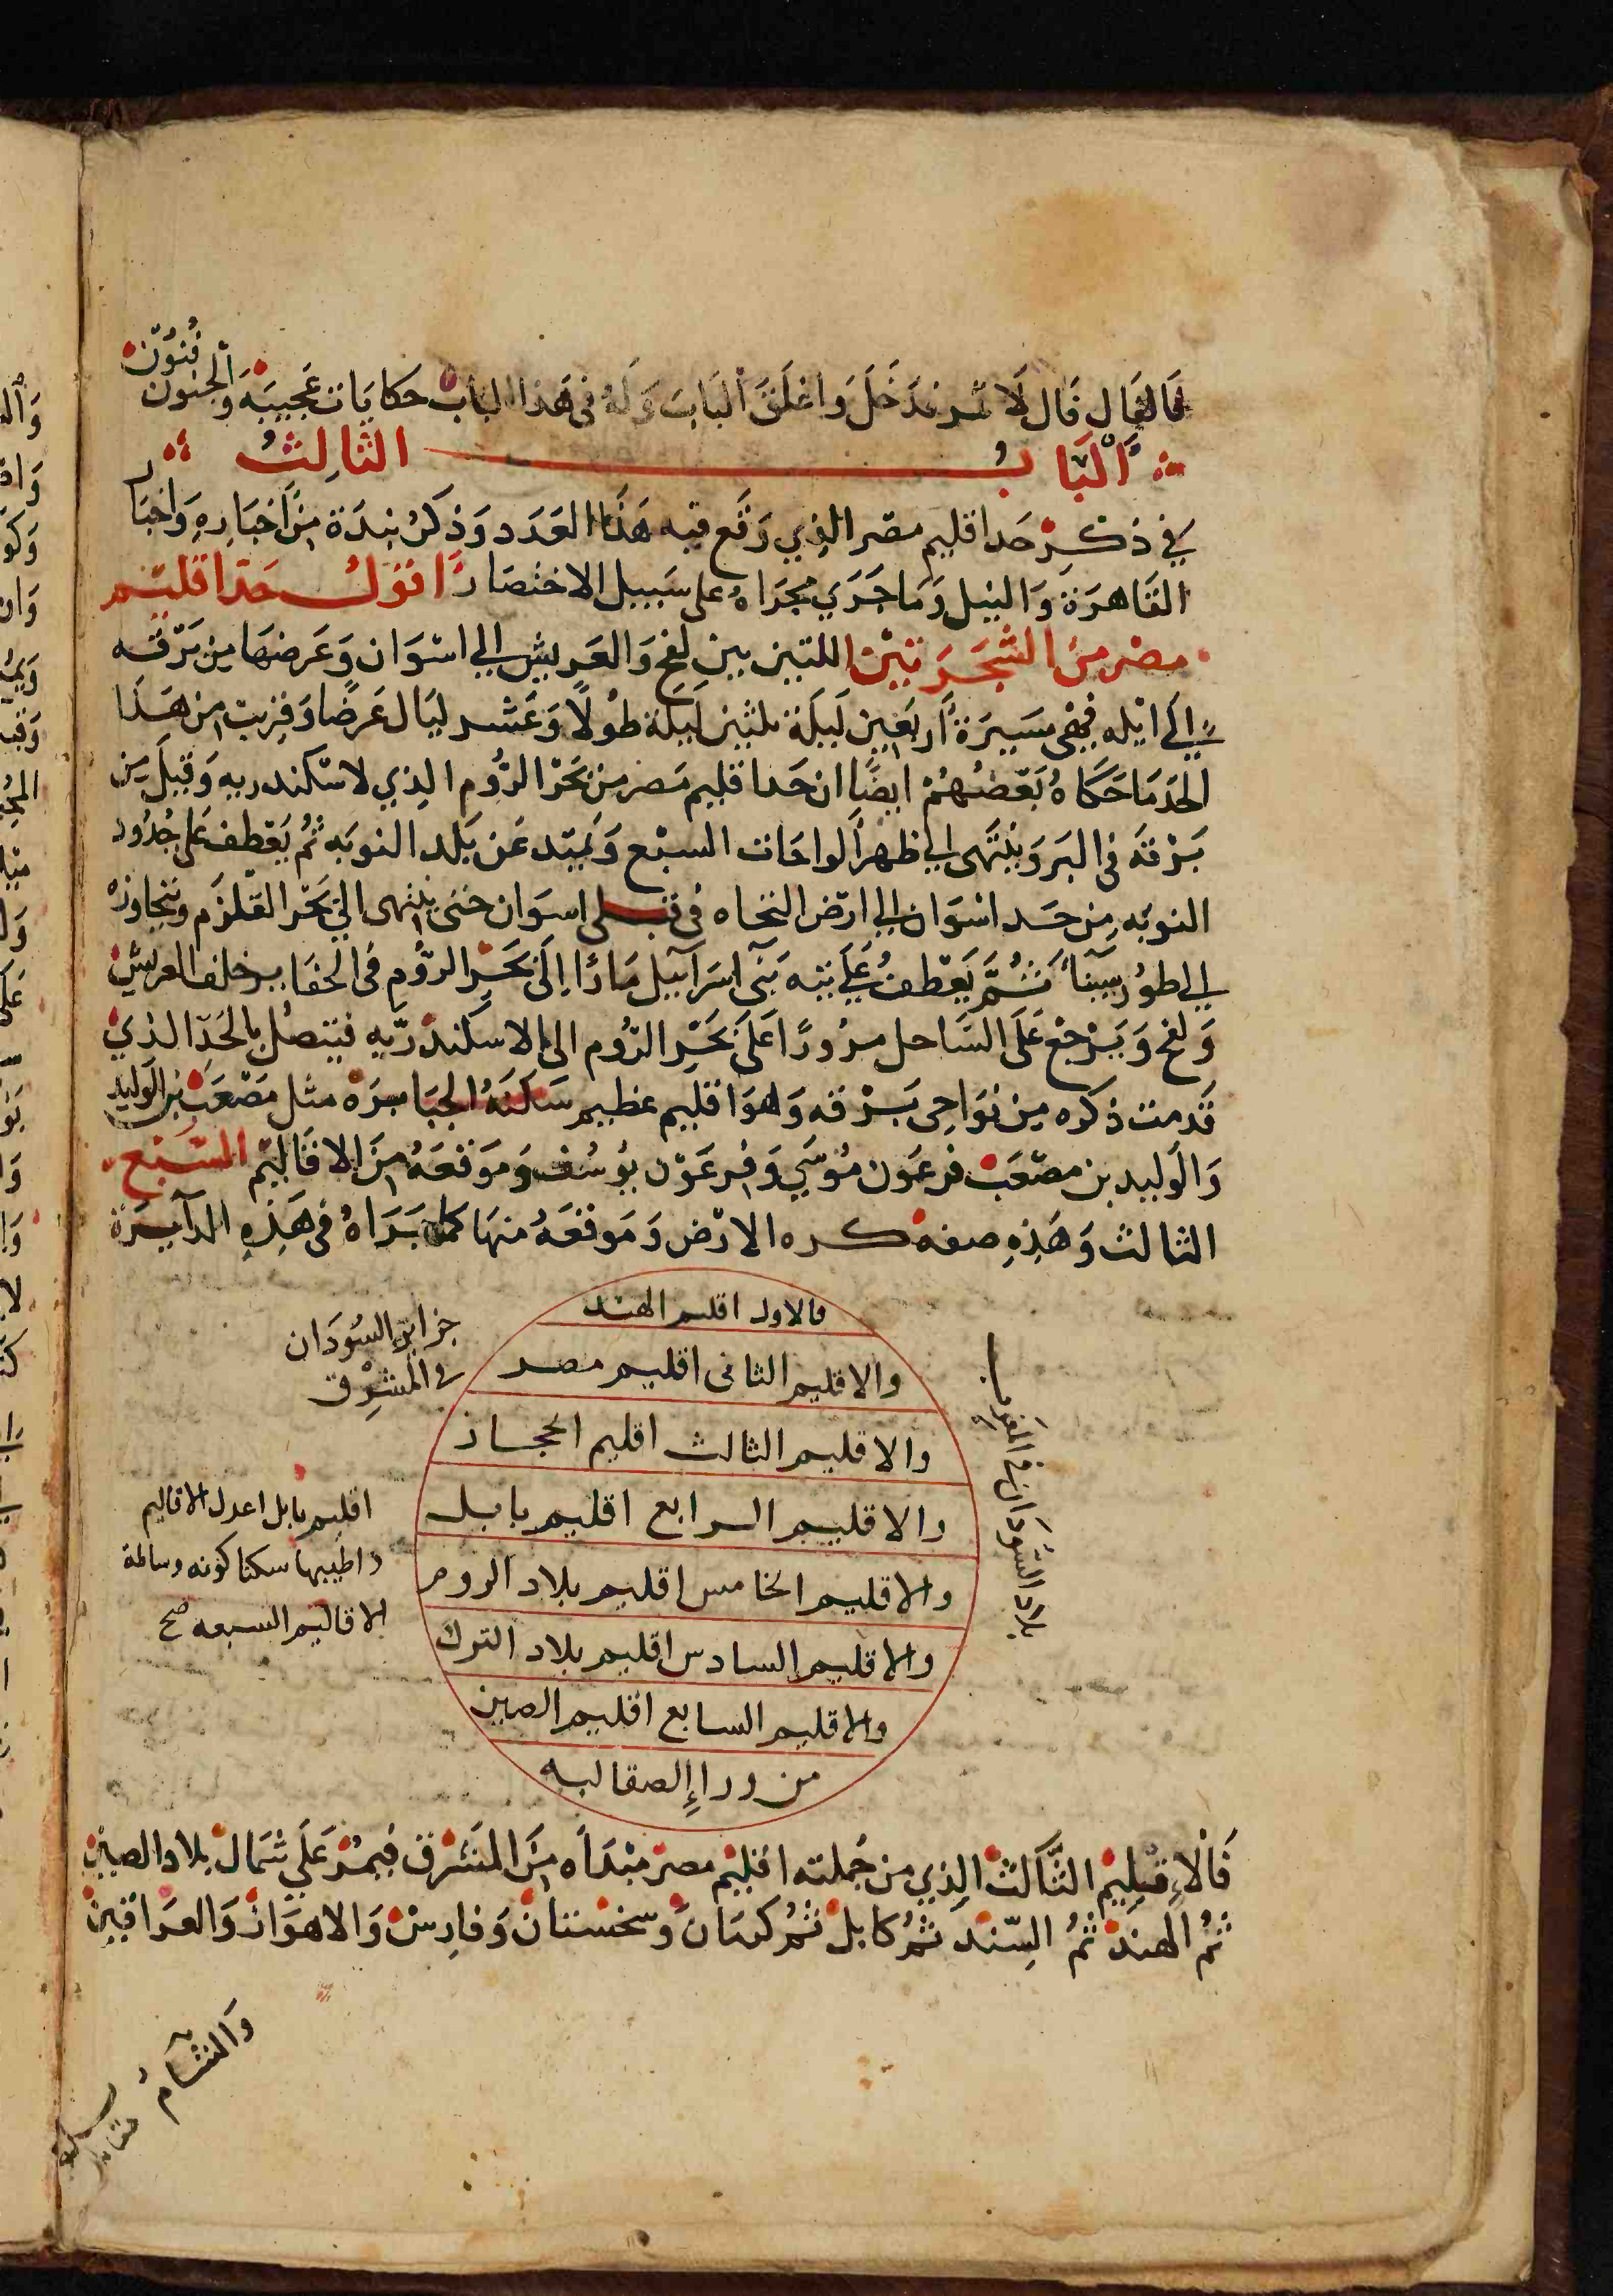 قال فقال قال لا ثم فدخل واغلق الباب وله في هذا الباب حكايات عجيبة والجنون
فنون
الباب الثالث
في ذكر حد اقليم مصر الذي وقع فيه هذا العدد وذكر نبذة من اخباره واخبار
القاهرة والنيل وما جري مجراه على سبيل الاختصار اقول حد اقليم
مصر من الشجرتين اللتين بين لفح والعريش الي اسوان وعرضها من برقه
الي ايله فهي مسيرة اربعين ليلة ثلثين ليلة طولا وعشر ليال عرضا وقريب من هذا
الحد ما حكاه بعضهم ايضا ان حد اقليم مصر من بحر الروم الذي لاسكندريه وقبل من
برقة في البر وينتهى الي ظهر الواحات السبع ويمتد عن بلد النوبه ثم يعطف على حدود
النوبه من حد اسوان الي ارض النجاه في قبلى اسوان حتى ينتهى الي بحر القلزم ويتجاوزه
الي طور سينا ثم يعطف علي تيه بني اسرآييل مادا إلى بحر الروم في الحفا بر خلف العريش
ولفح ويرجع على الساحل مرورا على بحر الروم الى الاسكندريه فيتصل بالحد الذي
قدمت ذكره من نواحي برقه وهو اقليم عظيم سكنه الجبابرة مثل مصعب بن الوليد
والوليد بن مصعب فرعون موسي وفرعون يوسف وموقعه من الاقاليم السبع
الثالث وهذه صفه كره الارض وموقعه منها كما براه في هذه الدآيرة
فالاول اقليم الهند
والاقليم الثاني اقليم مصر
والاقليم الثالث اقليم الحجاز
والاقليم الرابع اقليم بابل
والاقليم الخامس اقليم بلاد الروم
والاقليم السادس اقليم بلاد الترك
والاقليم السابع اقليم الصين
من وراإ الصقالبه
بلاد السودان في المغرب
جزاير السودان
في المشرق
اقليم بابل اعدل الاقاليم
واطيبها سكنا كونه وسالمة
الاقاليم السبعه صح
فالإقليم الثالث الذي من جملته اقليم مصر مبدأه من المشرق فيمر على شمال بلاد الصين
ثم الهند ثم السند ثم كابل ثم كرمان وسجستان وفارس والاهواز والعراقين
والشام